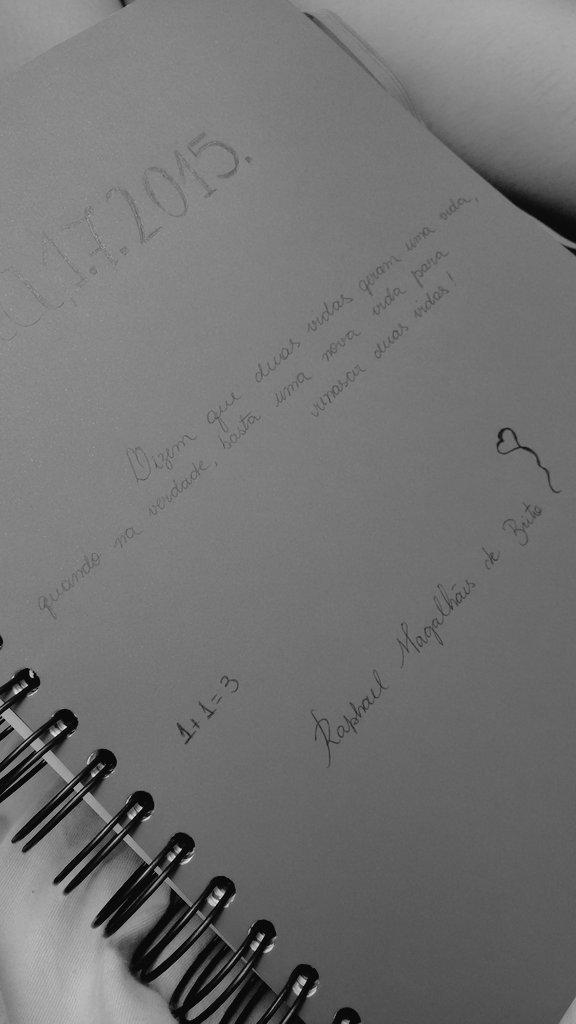 1.7.2015.
Dizem que duas vidas geram uma vida,
quando na verdade, basta uma nova vida para
renascer duas vidas!
Raphael Magalhães de Brito
1+1=3